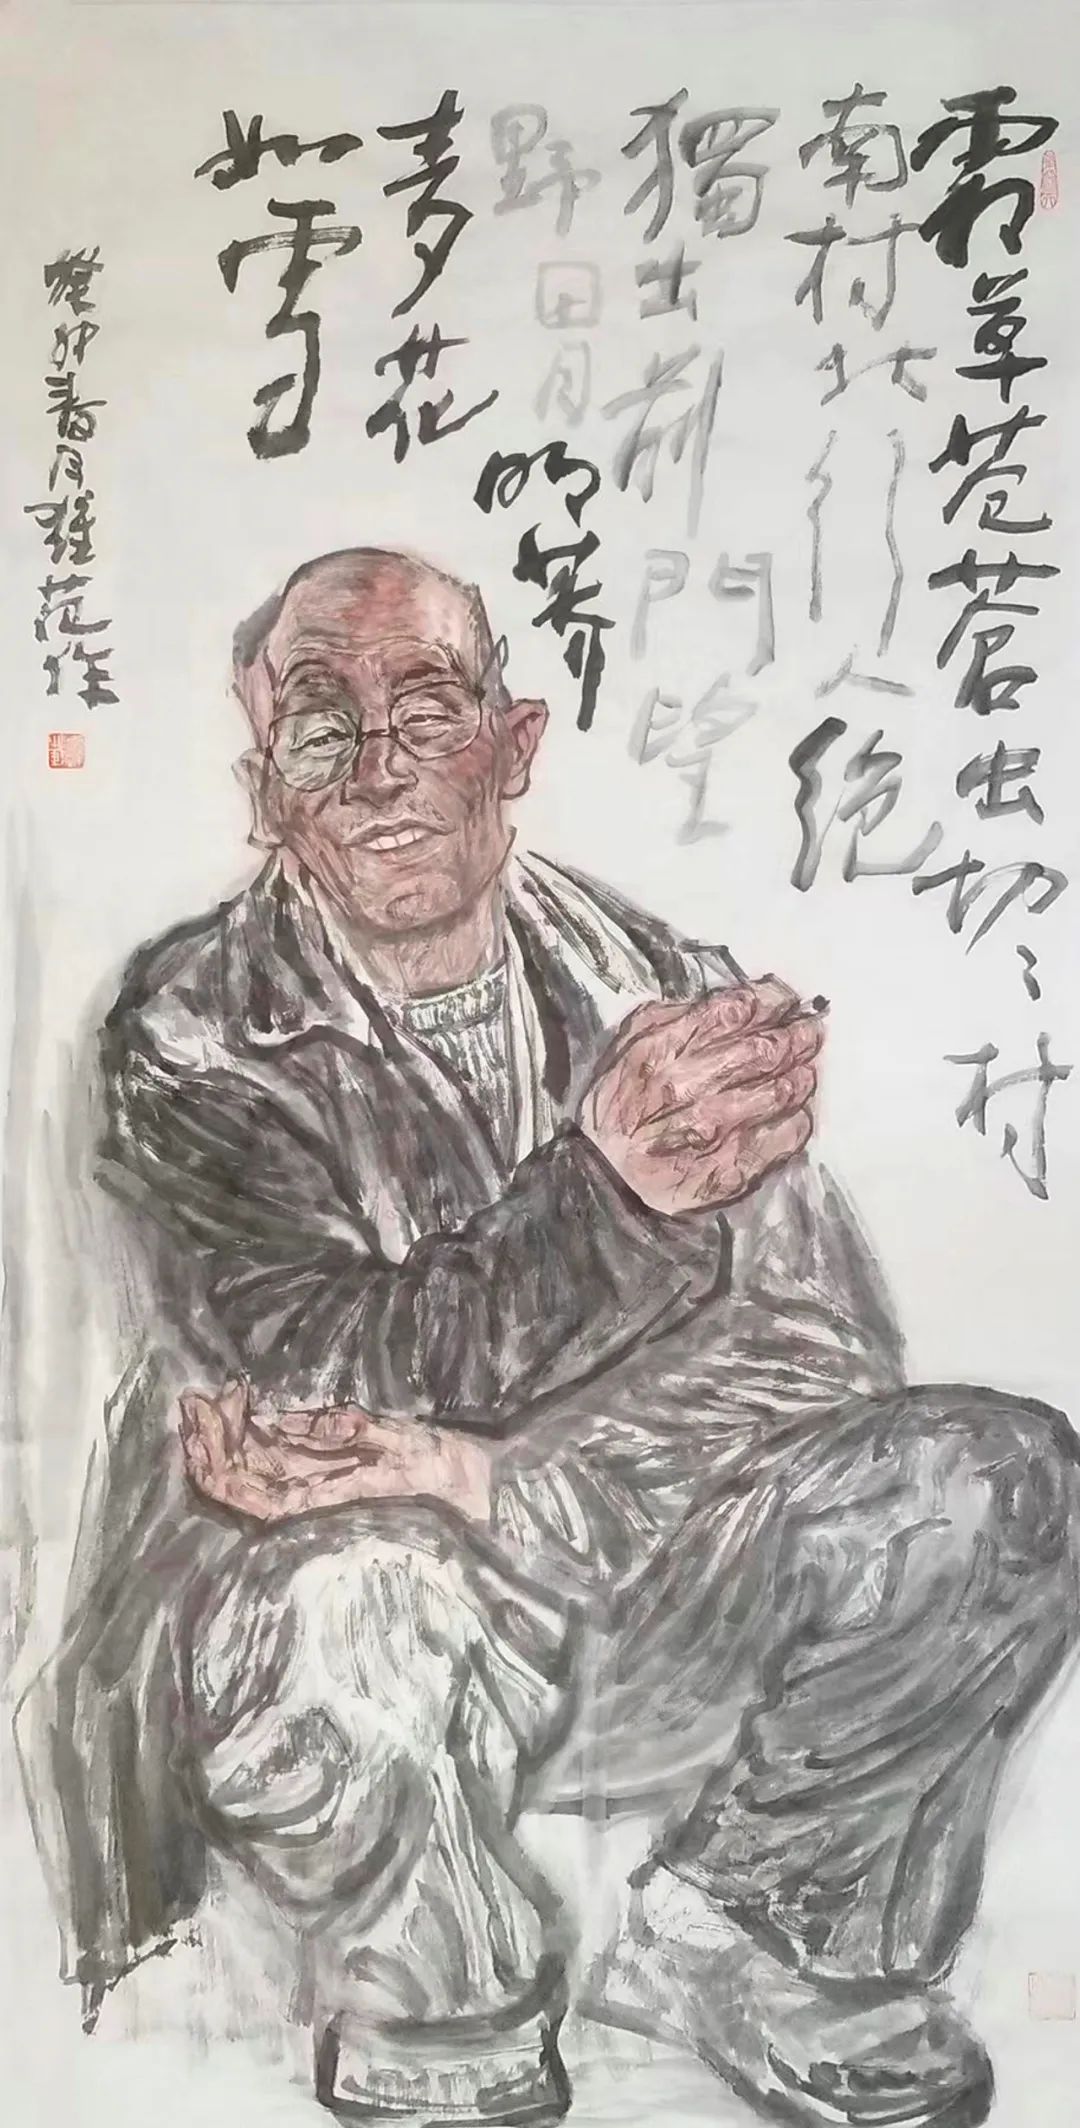 霜草苍蒼虫切〻村
南村北行人绝
獨出前門望
野田月明荞
麦花
如雪
癸卯春月范作